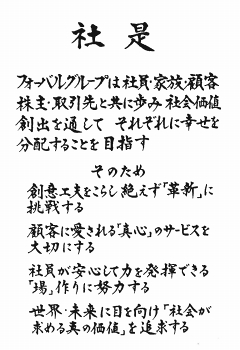 社是
フォーバルグループは社員・家族・顧客
株主・取引先と共に歩み社会価値
創出を通して それぞれに幸せを
分配することを目指す
そのため
創意工夫をこらし絶えず「革新」に
挑戦する
顧客に愛される「真心」のサービスを
大切にする
社員が安心して力を発揮できる
「場」作りに努力する
世界・未来に目を向け「社会が
求める真の価値」を追求する